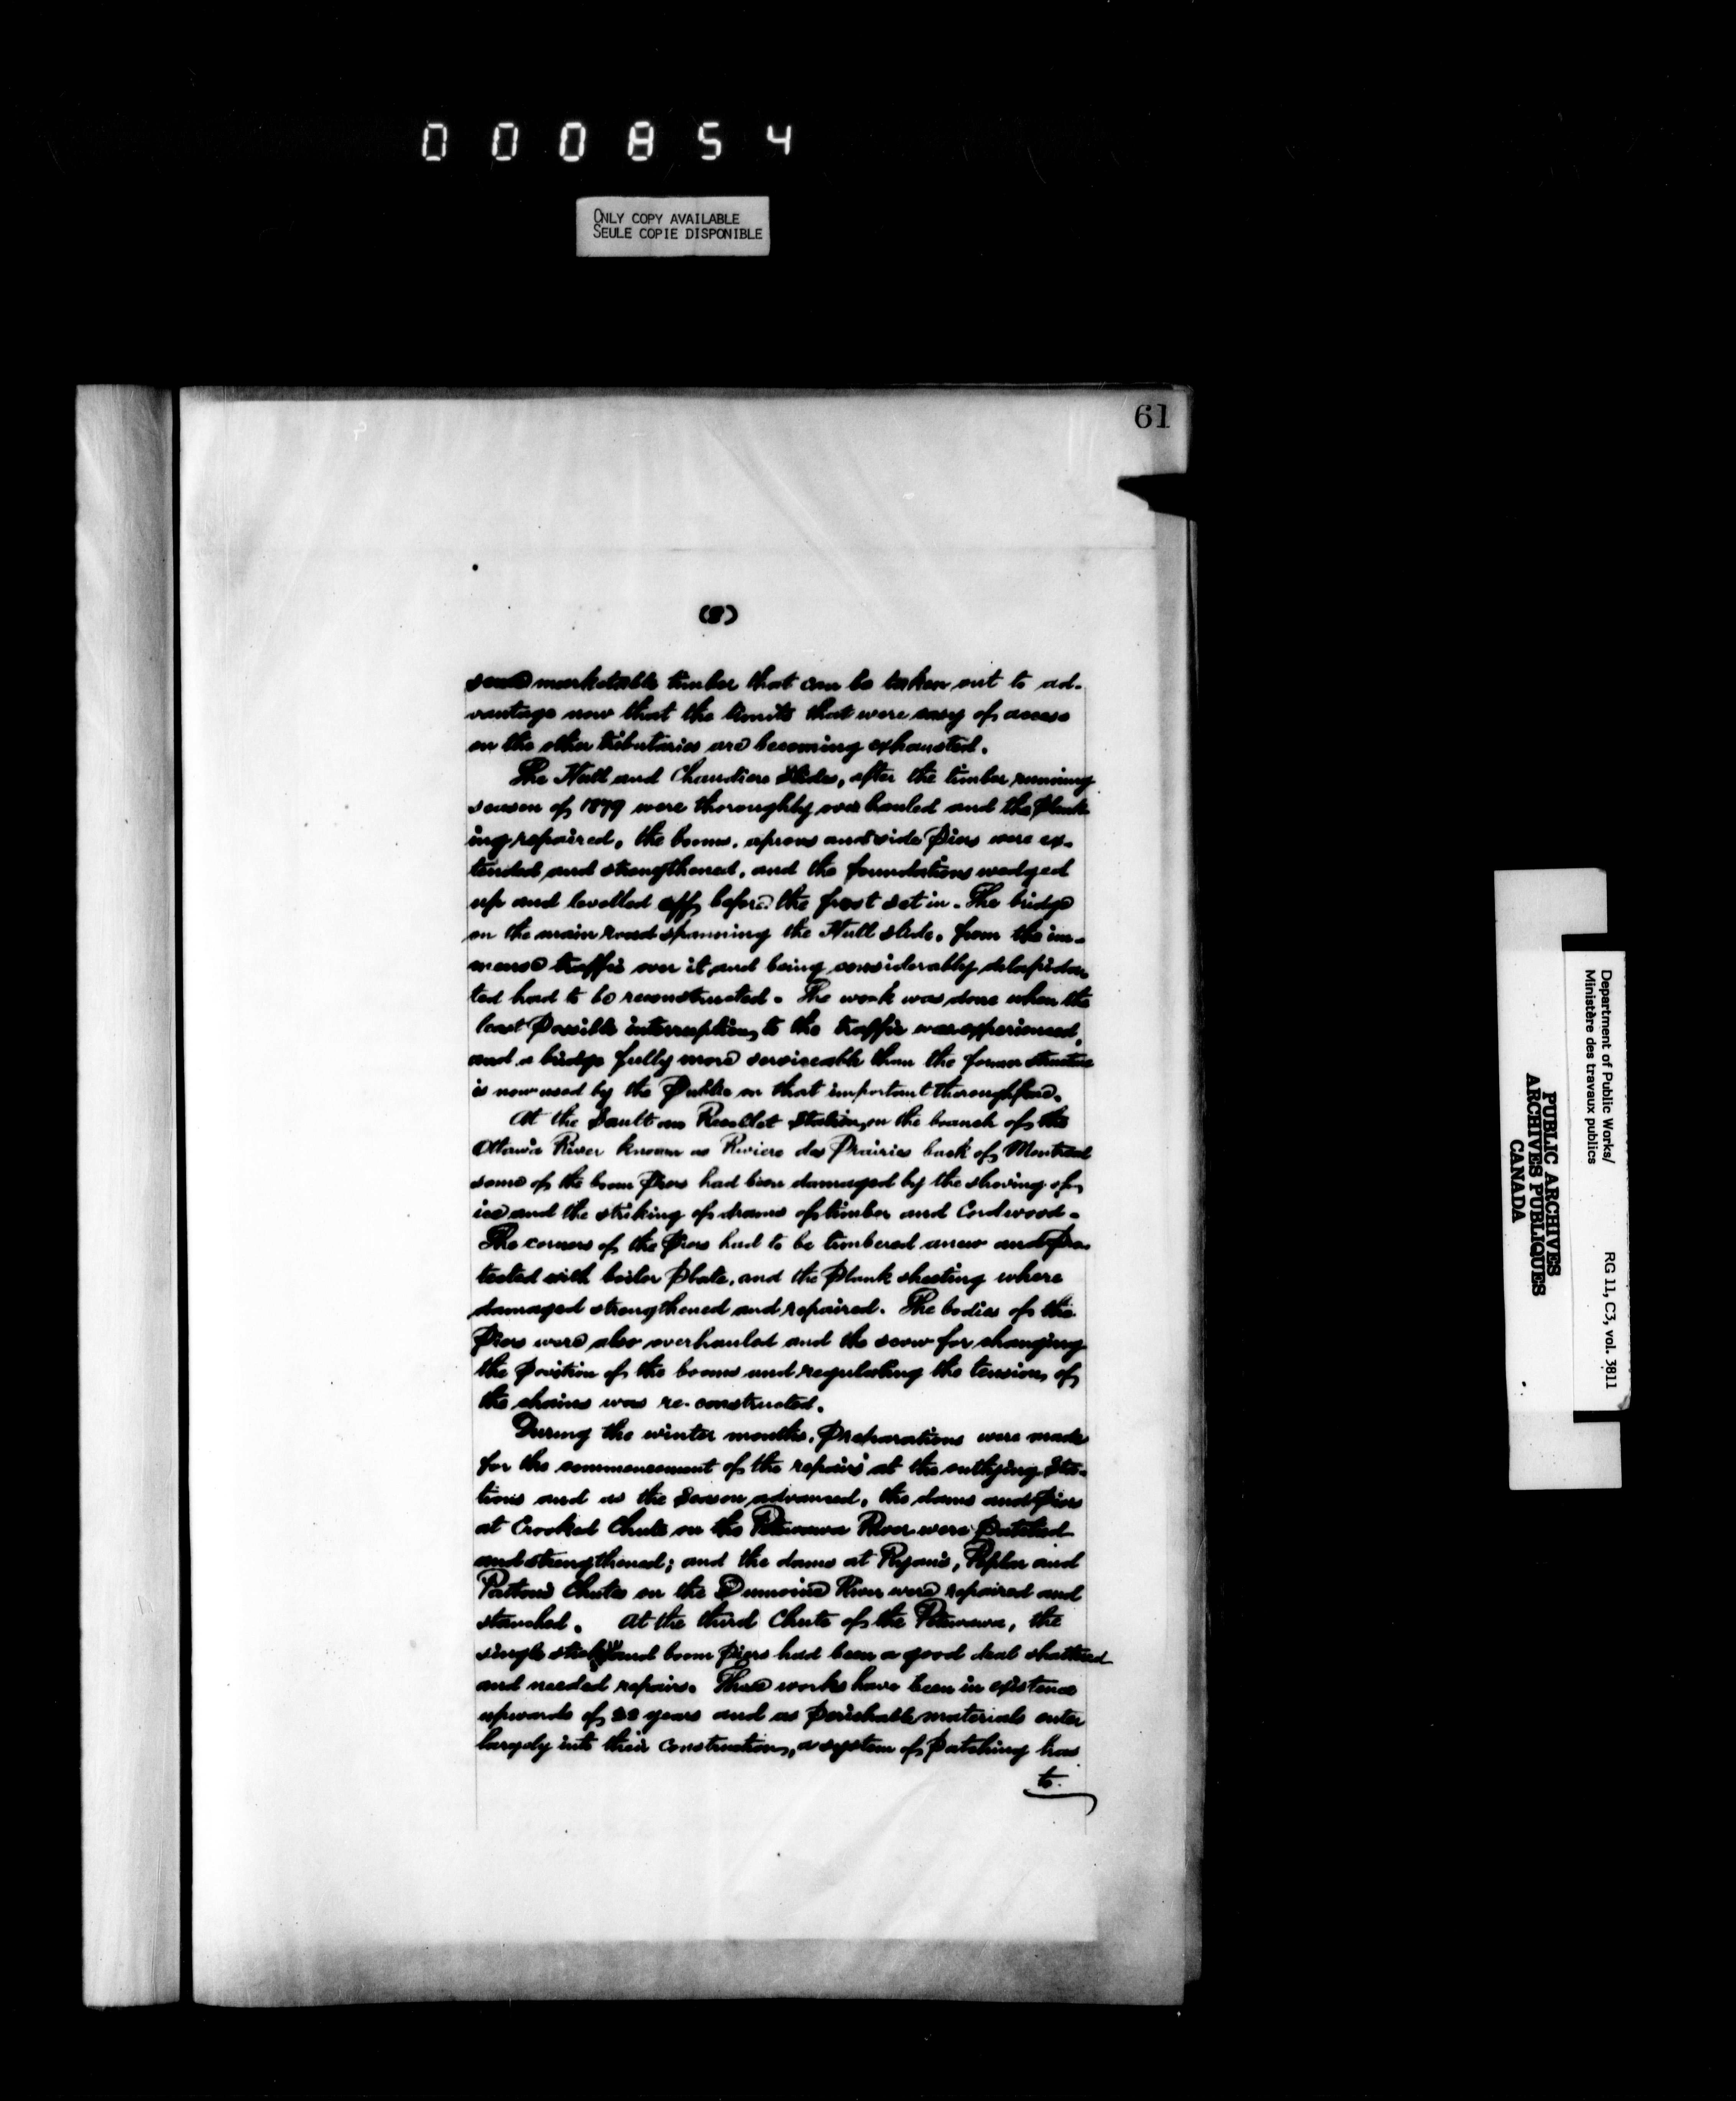 000854
ONLY COPY AVAILABLE
SEULE COPIE DISPONIBLE
61
(8)
marketable timber that can be taken out to ad-
vantage now that the limits that were easy of access
on the other tributaries are becoming exhausted.
The Hull and Chaudiere Slides, after the timber running
season of 1879 were thoroughly overhauled and the plank-
ing repaired, the booms, aprons and side piers were ex-
tended and strengthened, and the foundations wedged
up and levelled off before the frost set in. The bridge
on the main road spanning the Hull slide, from the im-
mense traffic over it and being considerably delapida-
ted had to be reconstructed. The work was done when the
least possible interruption to the traffic was experienced,
and a bridge fully more serviceable than the former structure
is now used by the Public on that important thoroughfare.
At the Sault au Recollet Station, on the branch of the
Ottawa River known as Riviere des Prairies back of Montreal
some of the boom piers had been damaged by the shoving of
ice and the striking of drams of timber and Cordwood.
The corners of the piers had to be timbered anew and pro-
tected with boiler plate, and the plank sheeting where
damaged strengthened and repaired. The bodies of the
piers were also overhauled and the scow for changing
the position of the booms and regulating the tension of
the chains was re-constructed.
During the winter months, preparations were made
for the commencement of the repairs at the outlying Sta-
tions and as the Season advanced, the dams and piers
at Crooked Chute on the Petewawa River were patched
and strengthened; and the dams at Ryan's, Poplar and
Chutes on the Dumoine River were repaired and
staunched. At the third Chute of the Petewawa, the
single and boom piers had been a good deal shattered
and needed repairs. These works have been in existence
upwards of 22 years and as perishable materials enter
largely into their construction, a system of patching has
to
Department of Public Works/
Ministère des travaux publics
RG 11, C3, vol. 3811
PUBLIC ARCHIVES
ARCHIVES PUBLIQUES
CANADA